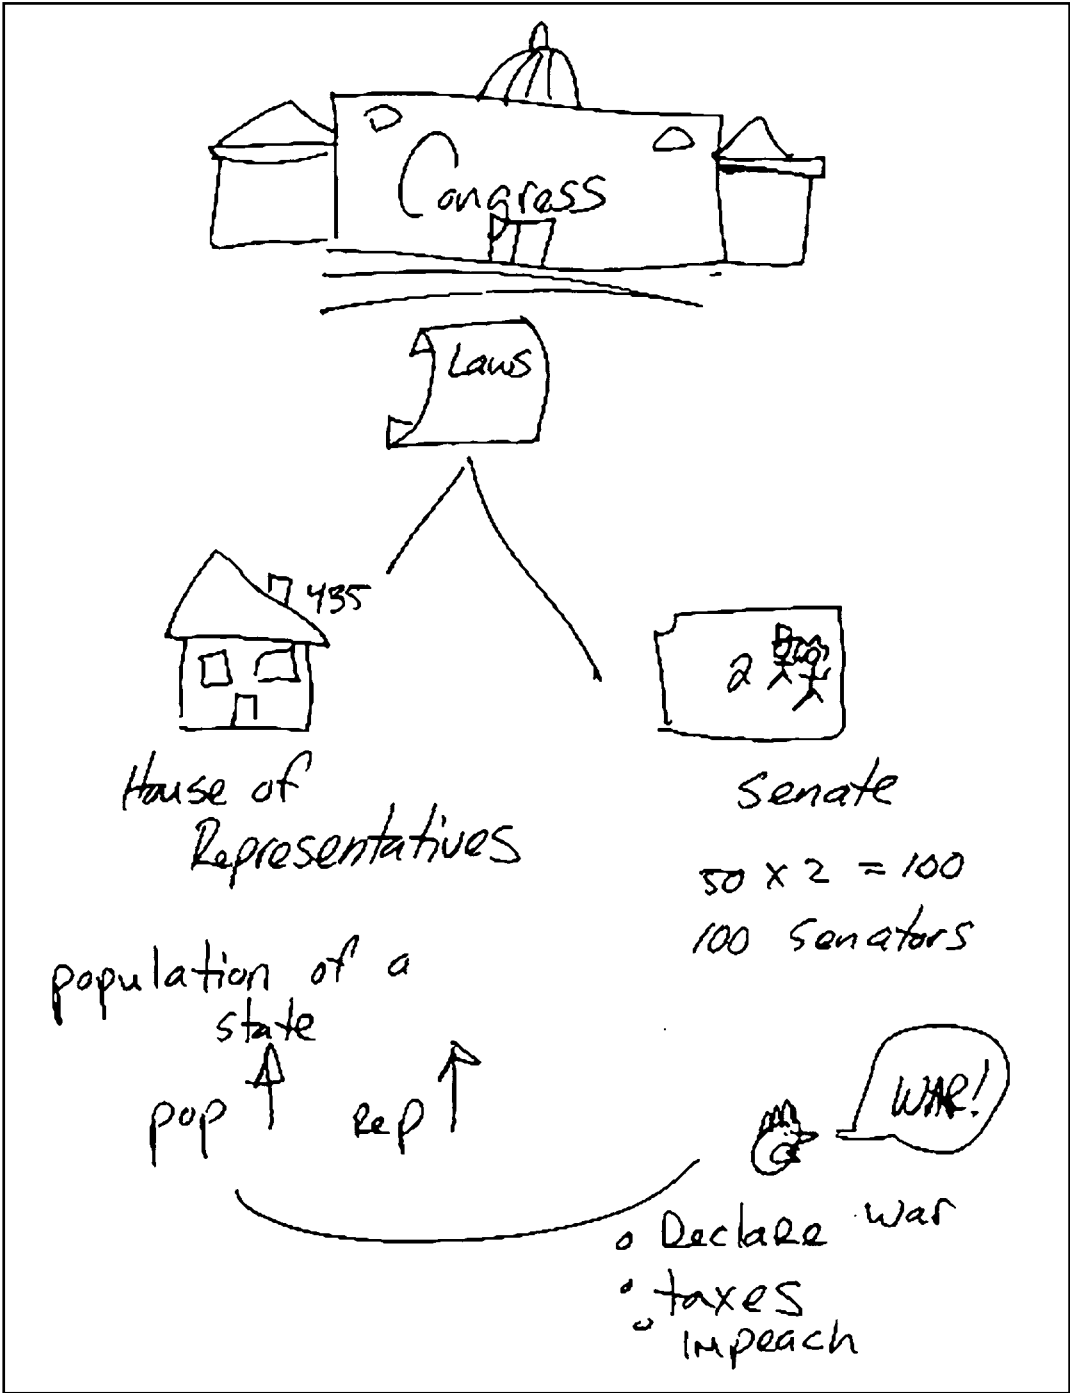 Congress
Laws
435
2
House of
Representatives
Senate
50 x 2 = 100
100 Senators
population of a
state
pop ↑ Rep ↑
WAR!
• Declare war
• taxes
• Impeach